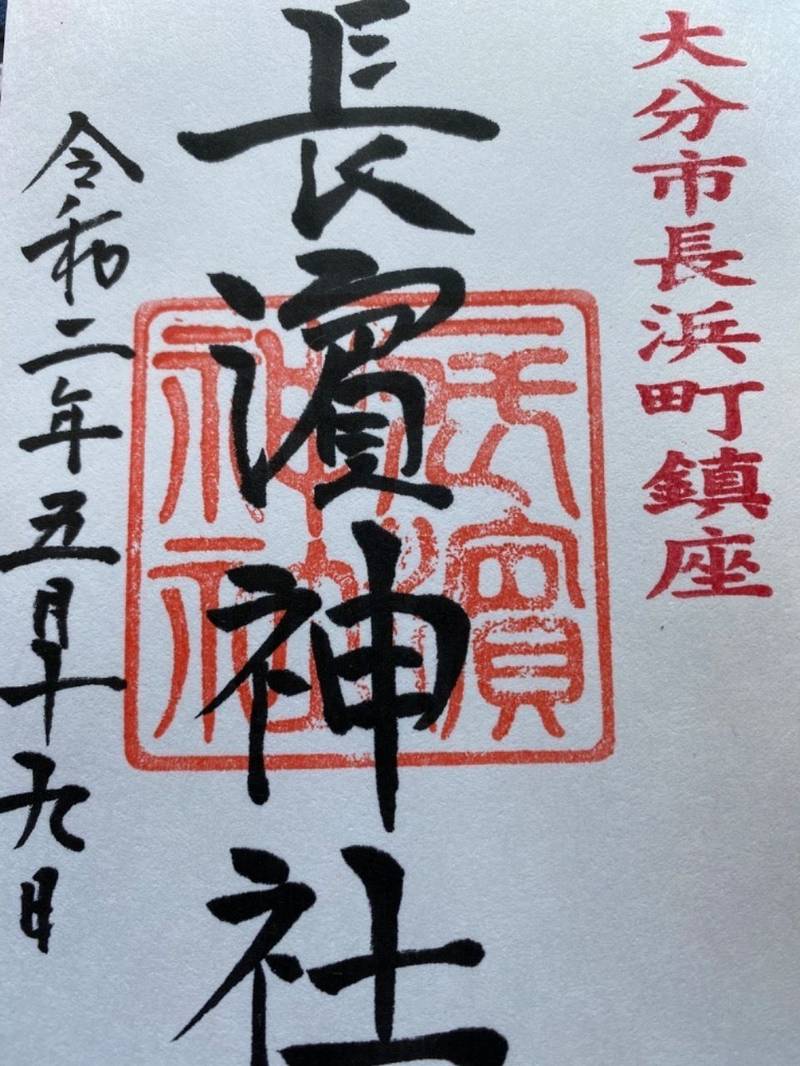 大分市長浜町鎮座
長濵神社
長濱神社
令和二年五月十九日